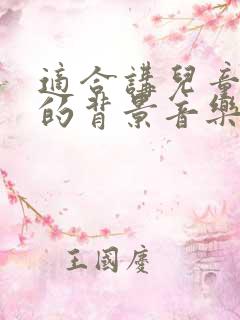 適合講兒童
的背景音樂
王國慶